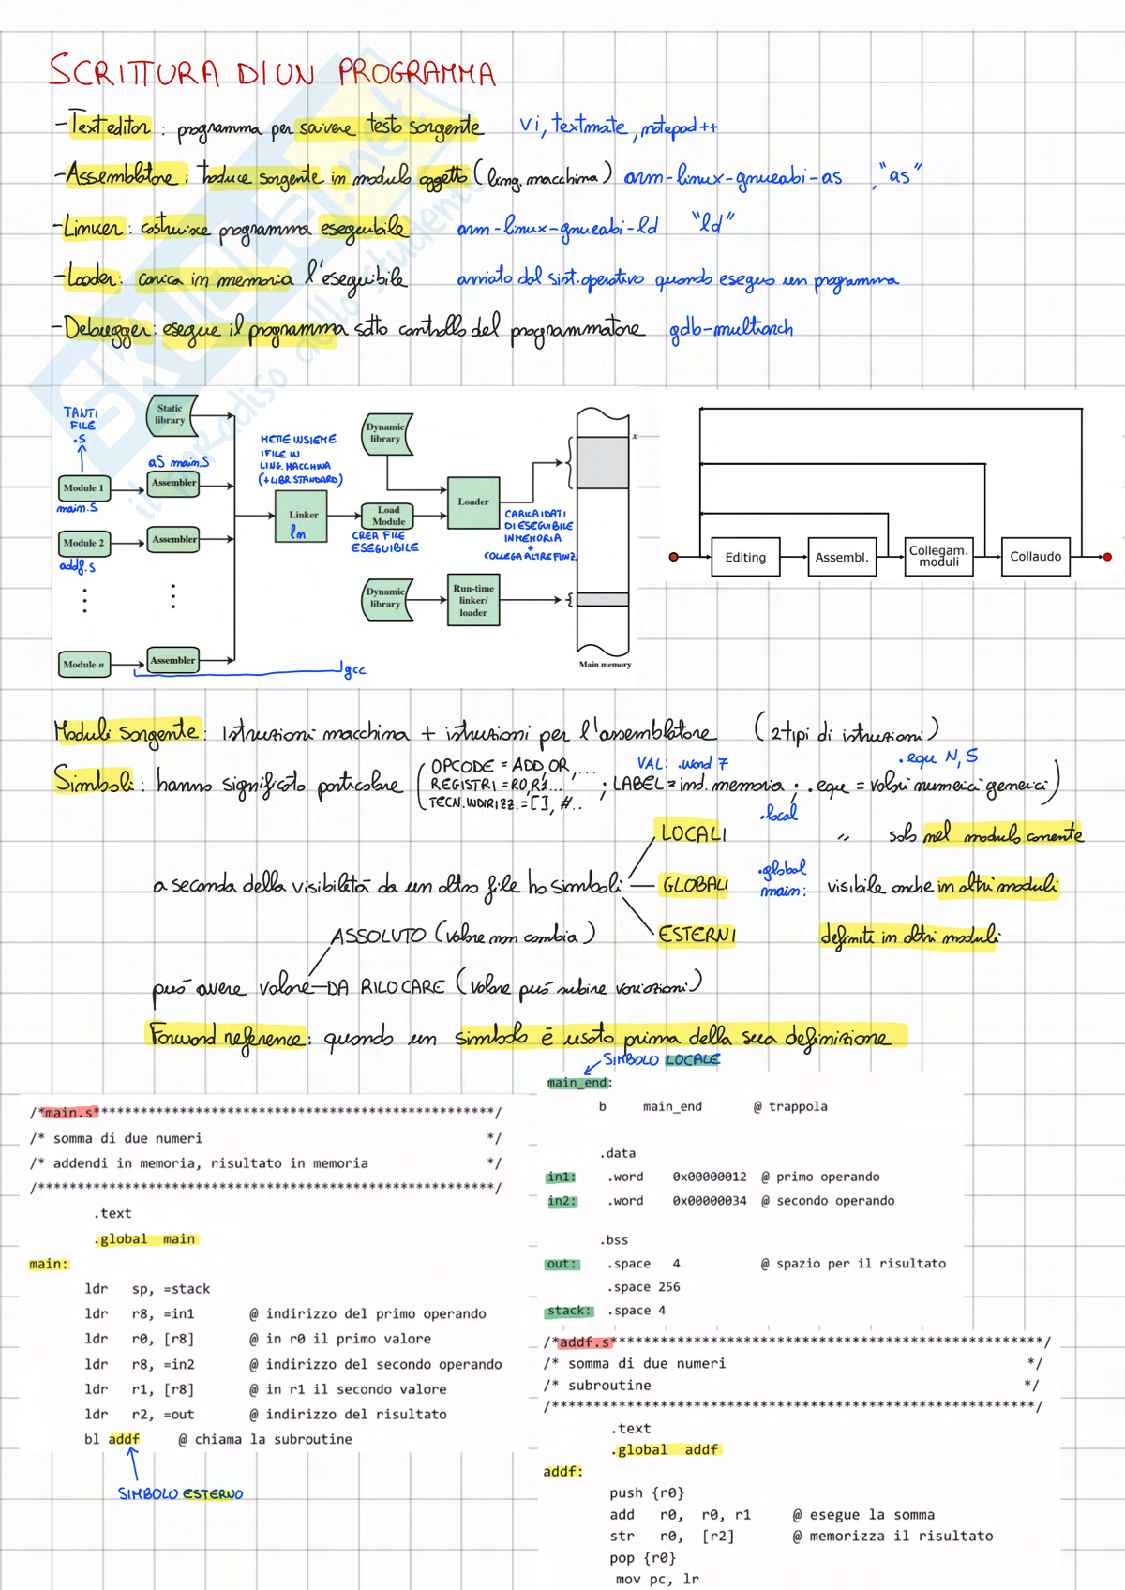 SCRITTURA DI UN PROGRAMMA
- Text editor : programma per scrivere testo sorgente vi, textmate, notepad++
- Assemblatore : traduce sorgente in modulo oggetto (ling. macchina) arm-linux-gnueabi-as , "as"
- Linker : costruisce programma eseguibile arm-linux-gnueabi-ld "ld"
- Loader : carica in memoria l'eseguibile avviato dal sist. operativo quando eseguo un programma
- Debugger : esegue il programma sotto controllo del programmatore gdb-multiarch
TANTI
FILE
.S
Static
library
as main.s
Module 1
Assembler
main.s
Module 2
Assembler
addf.s
Module n
Assembler
gcc
METTE INSIEME
I FILE IN
LING. MACCHINA
(+ LIBR STANDARD)
Linker
Dynamic
library
Load
Module
CREA FILE
ESEGUIBILE
Loader
CARICA I DATI
DI ESEGUIBILE
IN MEMORIA
+
COLLEGA ALTRE FUNZ.
Dynamic
library
Run-time
linker/
loader
x
Main memory
Editing
Assembl.
Collegam.
moduli
Collaudo
Moduli sorgente : Istruzioni macchina + istruzioni per l'assemblatore (2 tipi di istruzioni)
VAL: .word 7 .equ N, 5
Simboli : hanno significato particolare ( OPCODE = ADD, OR, ...
REGISTRI = R0, R1...
TECN. INDIRIZZ. = [], #..
; LABEL = ind. memoria ; .equ = valori numerici generici )
.local
LOCALI " solo nel modulo corrente
a seconda della visibilità da un altro file ho simboli — GLOBALI .global main: visibile anche in altri moduli
ESTERNI definite in altri moduli
ASSOLUTO (valore non cambia)
può avere valore — DA RILOCARE (valore può subire variazioni)
Forward reference : quando un simbolo è usato prima della sua definizione
/*main.s**************************************************/
/* somma di due numeri */
/* addendi in memoria, risultato in memoria */
/**********************************************************/
.text
.global main
main:
ldr sp, =stack
ldr r8, =in1 @ indirizzo del primo operando
ldr r0, [r8] @ in r0 il primo valore
ldr r8, =in2 @ indirizzo del secondo operando
ldr r1, [r8] @ in r1 il secondo valore
ldr r2, =out @ indirizzo del risultato
bl addf @ chiama la subroutine
SIMBOLO ESTERNO
SIMBOLO LOCALE
main_end:
b main_end @ trappola
.data
in1: .word 0x00000012 @ primo operando
in2: .word 0x00000034 @ secondo operando
.bss
out: .space 4 @ spazio per il risultato
.space 256
stack: .space 4
/*addf.s******************************************************/
/* somma di due numeri */
/* subroutine */
/*************************************************************/
.text
.global addf
addf:
push {r0}
add r0, r0, r1 @ esegue la somma
str r0, [r2] @ memorizza il risultato
pop {r0}
mov pc, lr